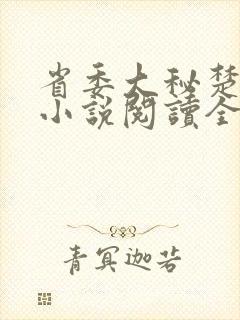 省委大秘楚
小說閱讀全
青冥迦若